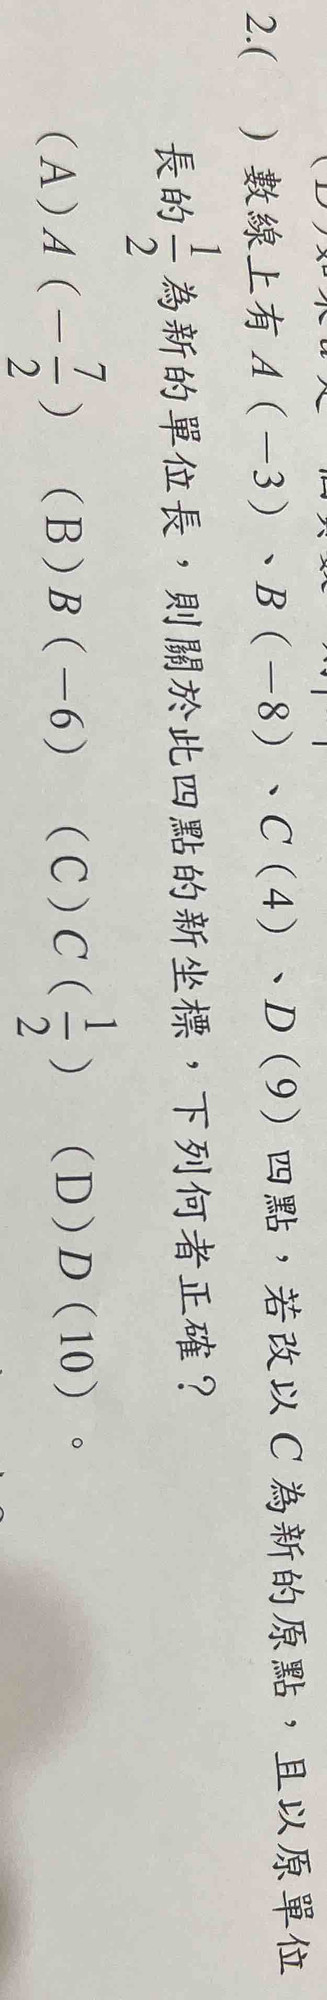 2.(　) 數線上有 A（−3）、B（−8）、C（4）、D（9）四點，若改以 C 為新的原點，且以原單位
長的 1/2 為新的單位長，則關於此四點的新坐標，下列何者正確？
（A）A（−7/2）　（B）B（−6）　（C）C（1/2）　（D）D（10）。